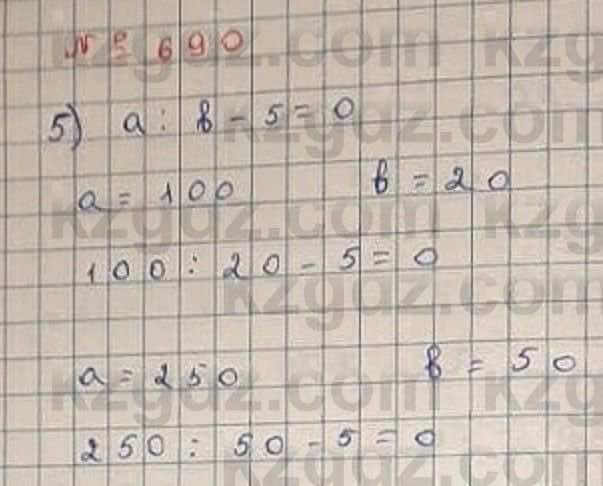 № 690
5) a : b - 5 = 0
a = 100 b = 20
100 : 20 - 5 = 0
a = 250 b = 50
250 : 50 - 5 = 0
kzgdz.com
kzgdz.com
kzgdz.com
kzgdz.com
kzgdz.com
kzgdz.com